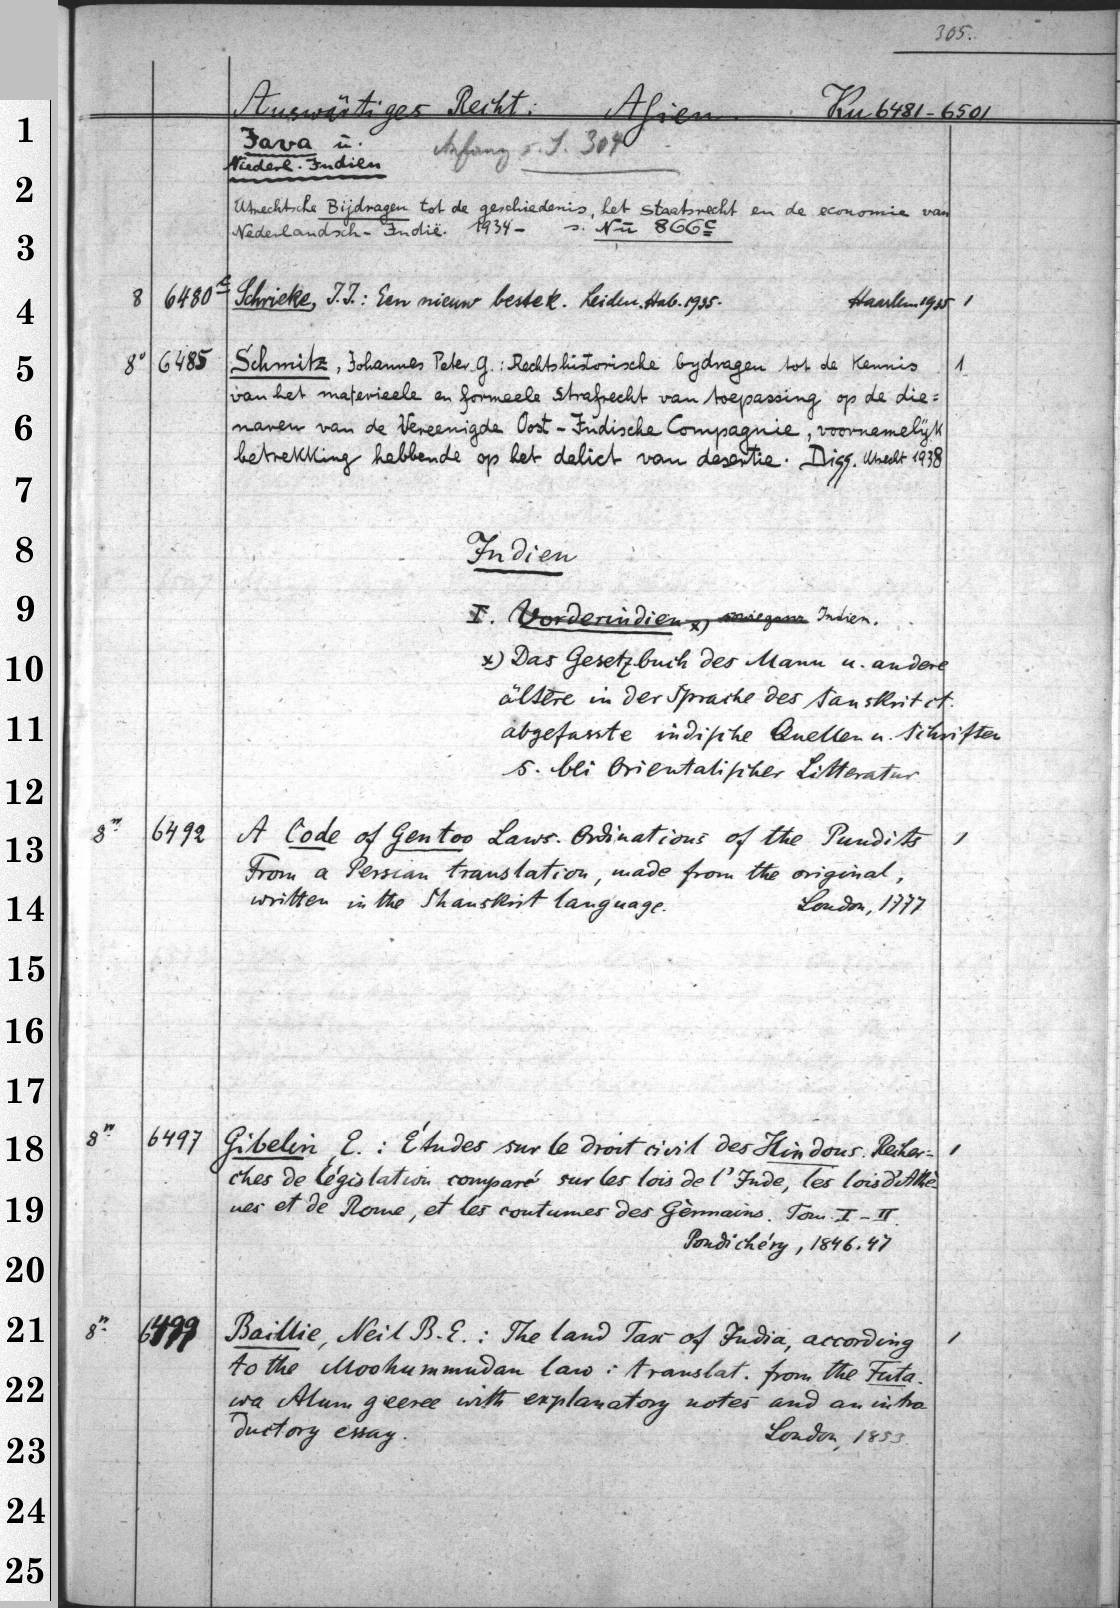 305.
Auswärtiges Recht: Asien. Ku 6481-6501
Java u. Anfang s. S. 304
Niederl. Indien
Utrechtsche Bijdragen tot de geschiedenis, het staatsrecht en de economie van
Nederlandsch-Indië. 1934- s. Nu 866c
8 6480c Schrieke, J.J.: Een nieuw bestek. Leiden. Hab. 1935. Haarlem 1935 1
8° 6485 Schmitz, Johannes Peter G.: Rechtshistorische bydragen tot de Kennis 1
van het materieele en formeele strafrecht van toepassing op de die=
naren van de Vereenigde Oost-Indische Compagnie, voornamelijk
betrekking hebbende op het delict van desertie. Diss. Utrecht 1938
Indien
I. Vorderindien x) Indien.
x) Das Gesetzbuch des Manu u. andere
ältere in der Sprache des Sanskrit et.
abgefasste indische Quellen u. Schriften
s. bei Orientalischer Litteratur
8° 6492 A Code of Gentoo Laws. Ordinations of the Pundits 1
From a Persian translation, made from the original,
written in the Shanskrit language. London, 1777
8° 6497 Gibelin, E.: Études sur le droit civil des Hindous. Recher= 1
ches de législation comparé sur les lois de l'Inde, les lois d'Athè
nes et de Rome, et les coutumes des Germains. Tom. I-II.
Pondichéry, 1846.47
8° 6499 Baillie, Neil B.E.: The land Tax of India, according 1
to the Moohummudan law: translat. from the Futa.
wa Alum geeree with explanatory notes and an intro
ductory essay. London, 1853
1
2
3
4
5
6
7
8
9
10
11
12
13
14
15
16
17
18
19
20
21
22
23
24
25